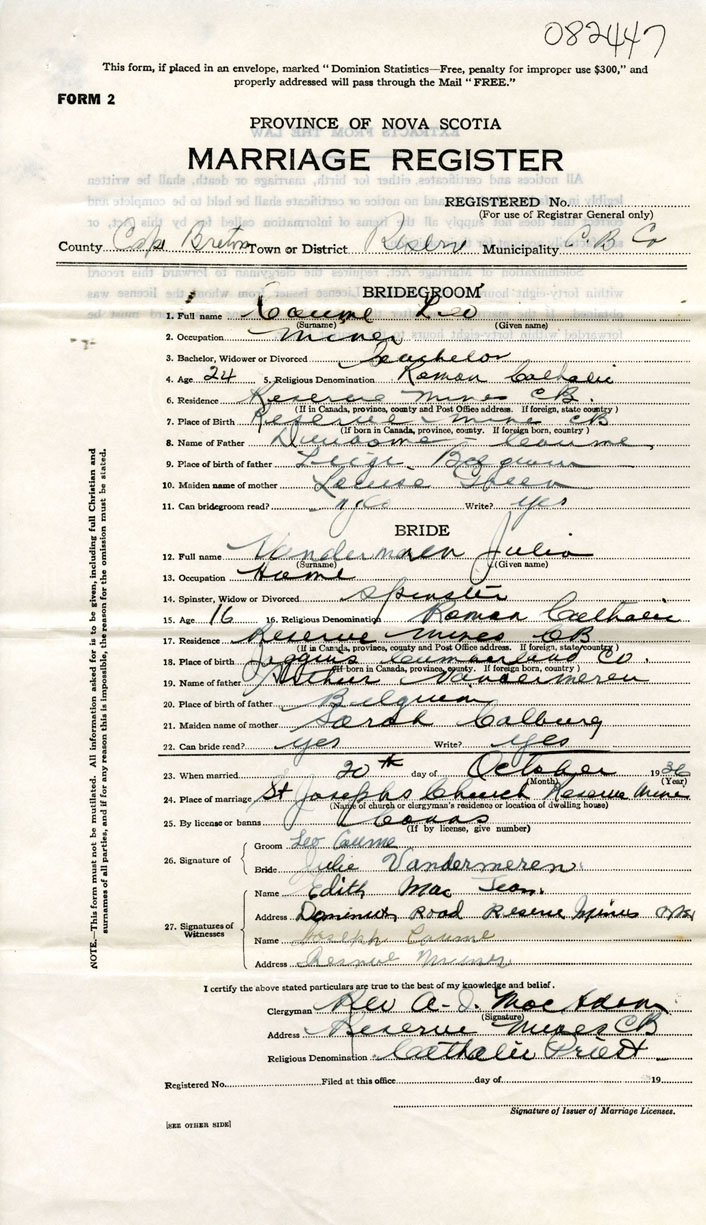 082447
This form, if placed in an envelope, marked "Dominion Statistics—Free, penalty for improper use $300," and
properly addressed will pass through the Mail "FREE."
FORM 2
PROVINCE OF NOVA SCOTIA
MARRIAGE REGISTER
REGISTERED No.
(For use of Registrar General only)
County Cape Breton Town or District Reserve Municipality C. B Co
BRIDEGROOM
1. Full name Caume Leo
(Surname) (Given name)
2. Occupation miner
3. Bachelor, Widower or Divorced bachelor
4. Age 24 5. Religious Denomination Roman Catholic
6. Residence Reserve Mines CB.
(If in Canada, province, county and Post Office address. If foreign, state country)
7. Place of Birth Reserve Mines CB
(If born in Canada, province, county. If foreign born, country)
8. Name of Father Caume
9. Place of birth of father Belgium
10. Maiden name of mother Louise
11. Can bridegroom read? yes Write? yes
BRIDE
12. Full name Vandermeren Julia
(Surname) (Given name)
13. Occupation Home
14. Spinster, Widow or Divorced Spinster
15. Age 16 16. Religious Denomination Roman Catholic
17. Residence Reserve Mines CB
(If in Canada, province, county and Post Office address. If foreign, state country)
18. Place of birth Joggins Cumberland Co.
(If born in Canada, province, county. If foreign born, country)
19. Name of father Arthur Vandermeren
20. Place of birth of father Belguim
21. Maiden name of mother Sarah Colburg
22. Can bride read? yes Write? yes
23. When married 20th day of October 1936
(Month) (Year)
24. Place of marriage St Josephs Church Reserve Mines
(Name of church or clergyman's residence or location of dwelling house)
25. By license or banns Banns
(If by license, give number)
26. Signature of
Groom Leo Caume
Bride Julie Vandermeren
27. Signatures of Witnesses
Name Edith Mac Jean
Address Dominion Road Reserve Mines
Name Joseph Caume
Address Reserve Mines
I certify the above stated particulars are true to the best of my knowledge and belief.
Clergyman Rev A. J. MacAdam
(Signature)
Address Reserve Mines CB
Religious Denomination Catholic Priest
Registered No. Filed at this office day of 19
Signature of Issuer of Marriage Licenses.
[SEE OTHER SIDE]
NOTE.—This form must not be mutilated. All information asked for is to be given, including full Christian and
surnames of all parties, and if for any reason this is impossible, the reason for the omission must be stated.